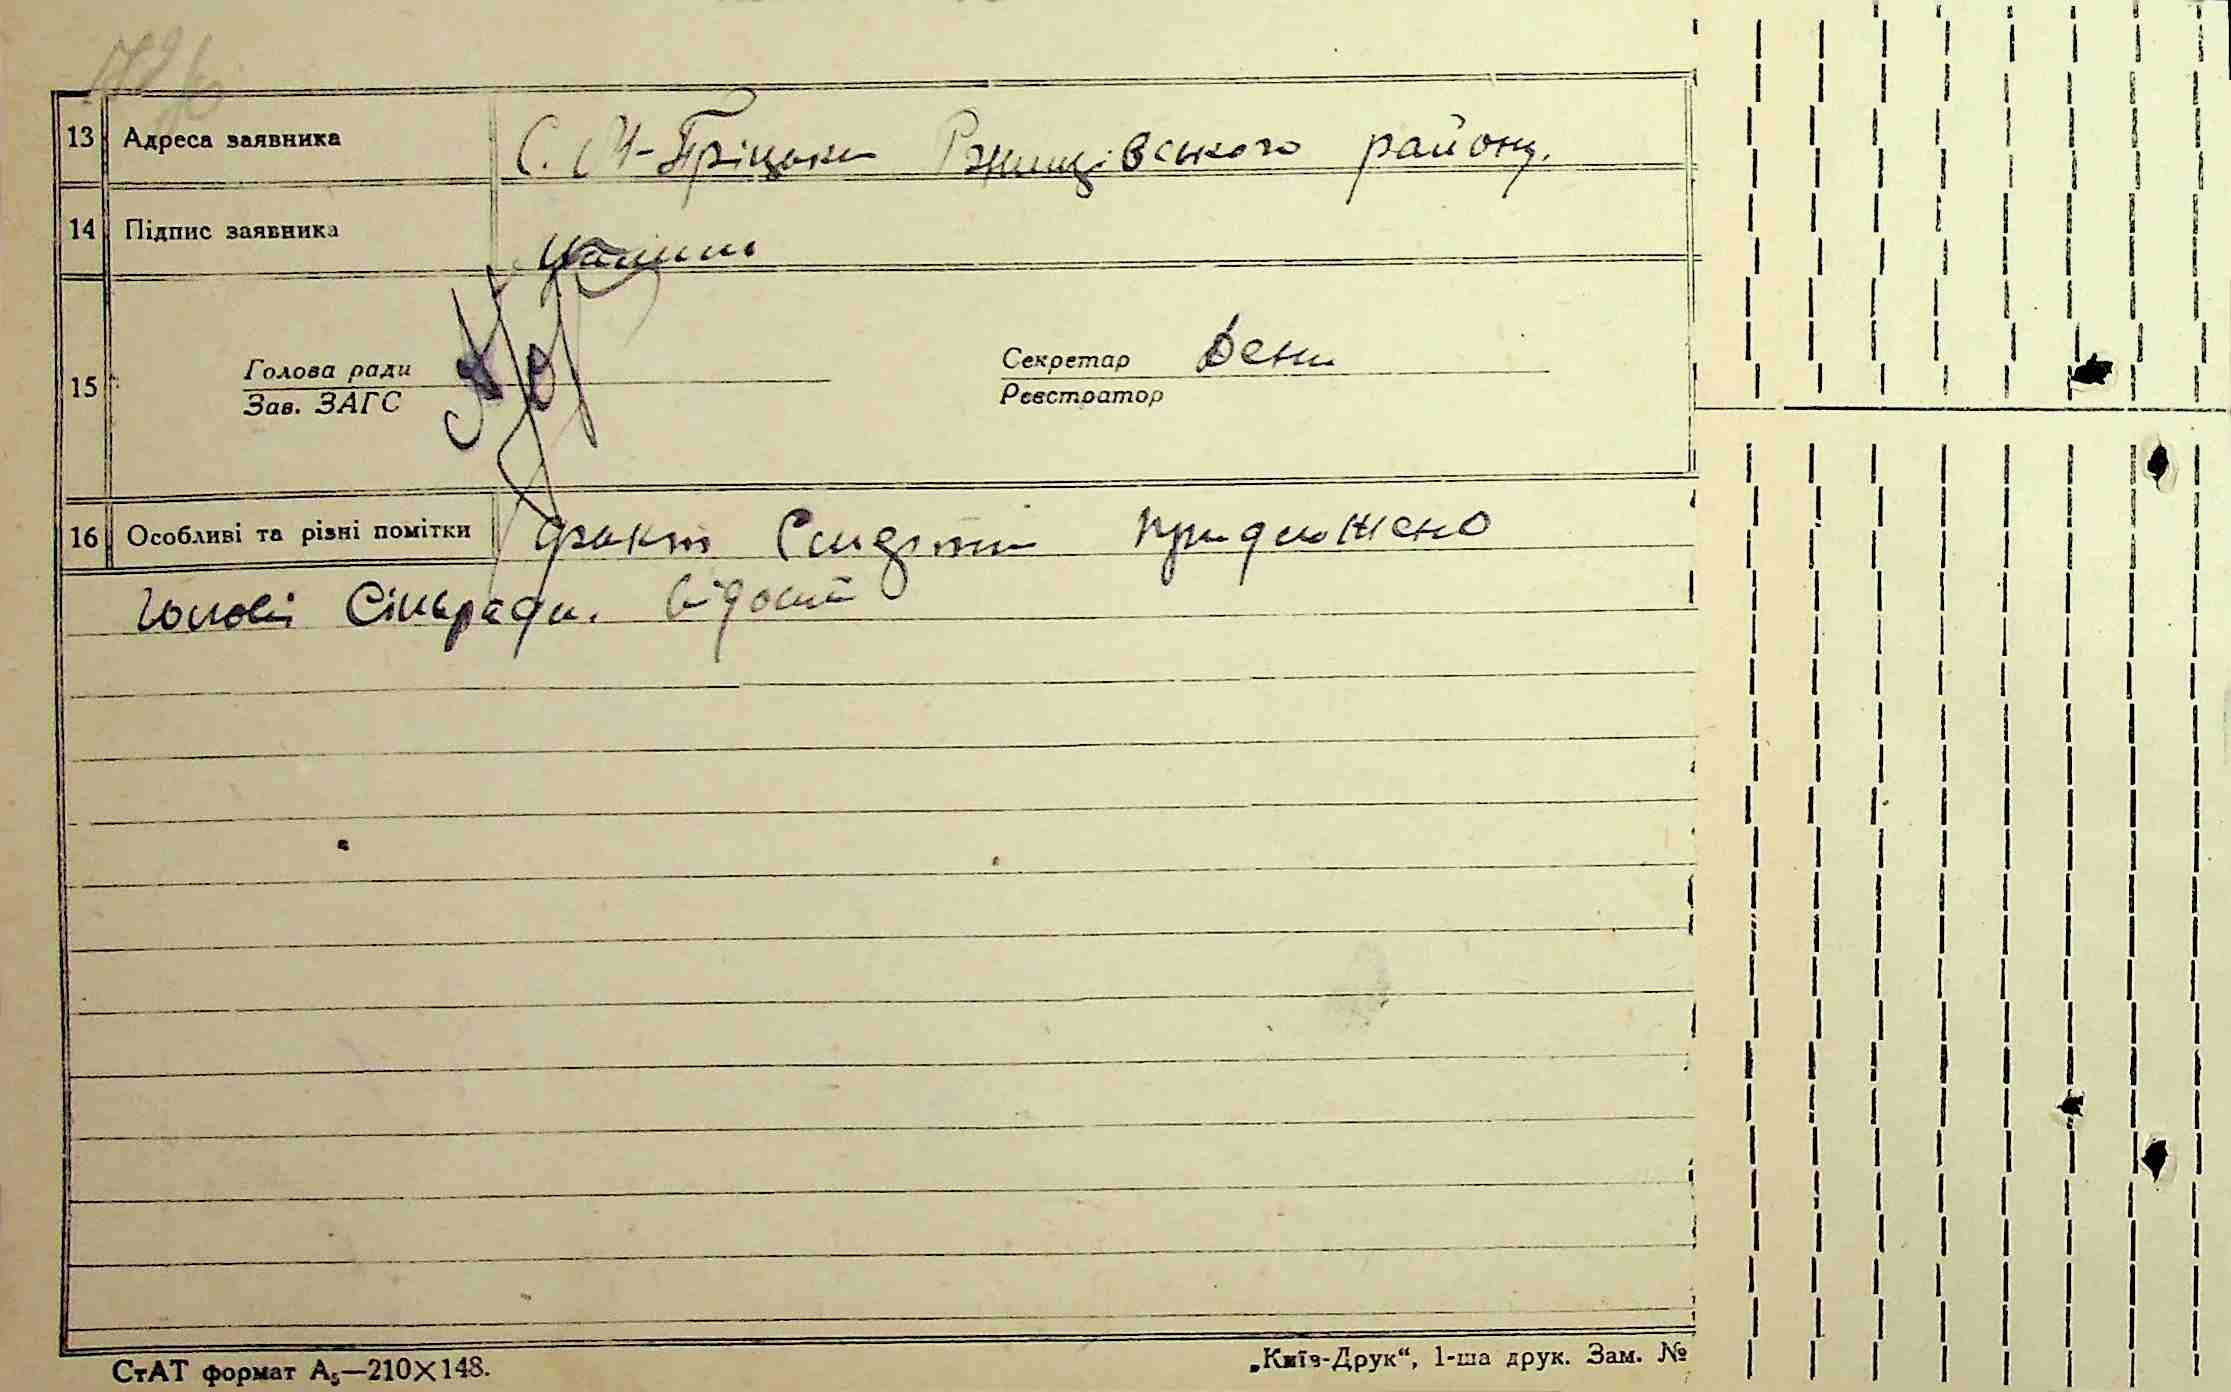 13 Адреса заявника С. М-Пріцьки Ржищівського району.
14 Підпис заявника
15 Голова ради Секретар
Зав. ЗАГС Реєстратор
16 Особливі та різні помітки факт Смерти придложено
голові Сільради. відомий
СтАТ формат А₅—210×148. „Київ-Друк“, 1-ша друк. Зам. №